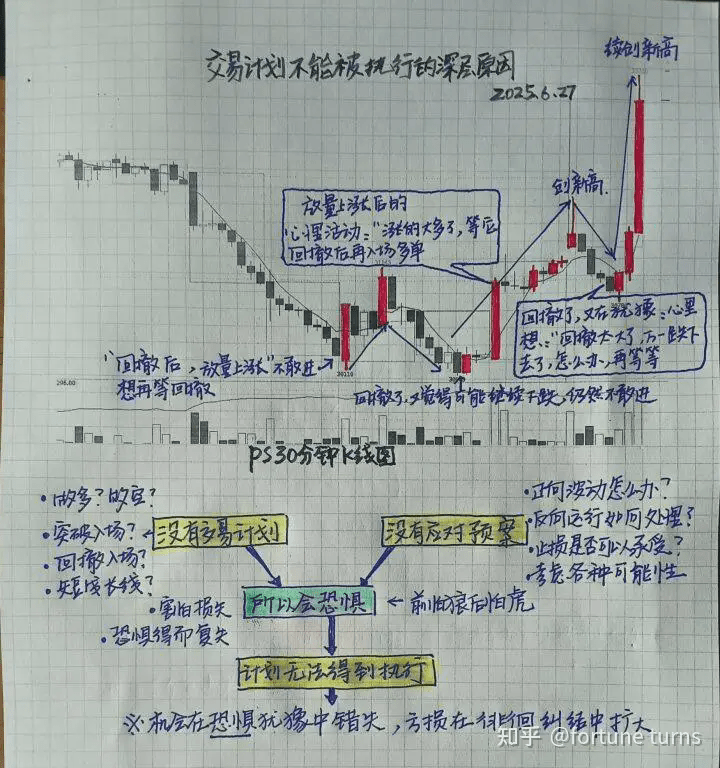 续创新高
交易计划不能被执行的深层原因
2025.6.27
创新高.
放量上涨后的
心理活动:"涨的太多了,等后
回撤后再入场多单
回撤了,又在犹豫:心里
想:"回撤太大了,万一跌下
去了,怎么办,再等等
"回撤后,放量上涨"不敢进
想再等回撤
30110
296.00
回撤了,又觉得可能继续下跌,仍然不敢进
PS30分钟K线图
·做多?做空?
·突破入场?
·回撤入场?
·短线长线?
没有交易计划
没有应对预案
·正向波动怎么办?
·反向运行如何处理?
·止损是否可以承受?
·考虑各种可能性
·害怕损失
·恐惧得而复失
所以会恐惧
前怕狼后怕虎
计划无法得到执行
※机会在恐惧犹豫中错失,亏损在徘徊纠结中扩大
知乎 @fortune turns